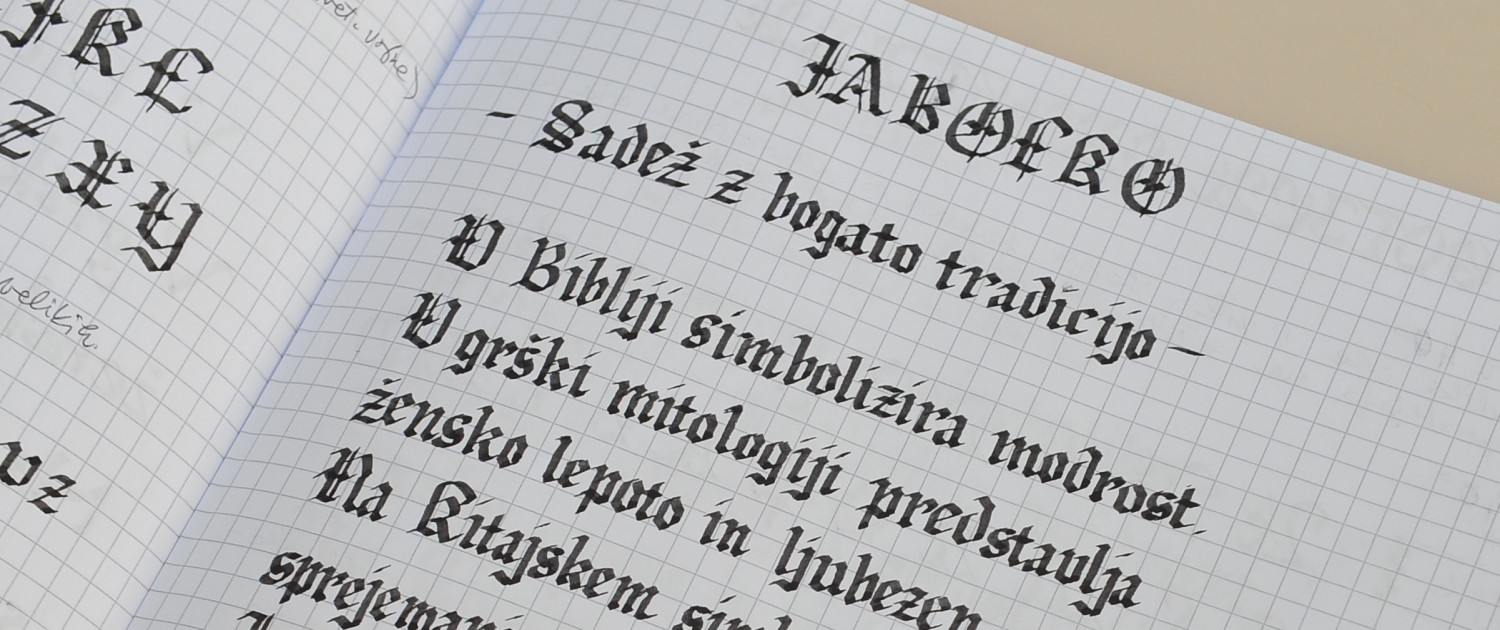 F K E
Z X Y
velikih.
vz
JABOLKO
- Sadež z bogato tradicijo -
V Bibliji simbolizira modrost.
V grški mitologiji predstavlja
žensko lepoto in ljubezen
Na Kitajskem